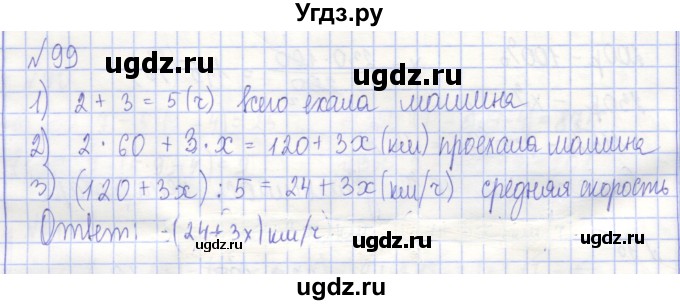 Угдз.ру
№99
1) 2 + 3 = 5 (ч) всего ехала машина
2) 2 · 60 + 3 · x = 120 + 3x (км) проехала машина
3) (120 + 3x) : 5 = 24 + 3x (км/ч) средняя скорость
Ответ: -(24+3x) км/ч
ugdz.ru
ugdz.ru
ugdz.ru
ugdz.ru
ugdz.ru
ugdz.ru
ugdz.ru
ugdz.ru